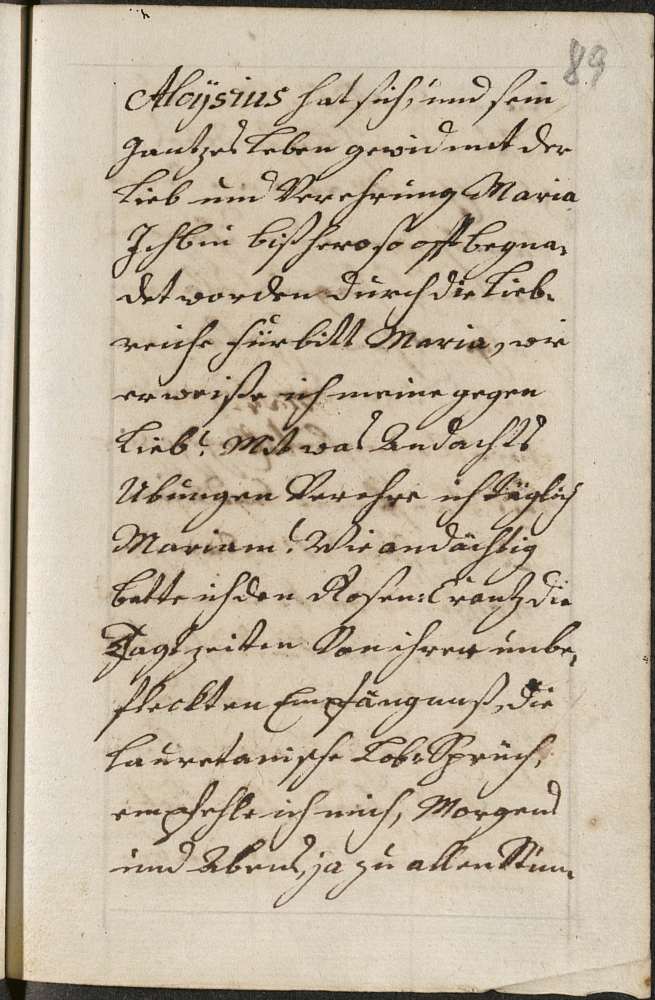 89
Aloÿsius hat sich, und sein
gantzes Leben gewidmet der
Lieb und Verehrung Maria
Ich bin bißhero so offt begna-
det worden durch die Lieb-
reiche fürbitt Maria, wie
erweiße ich meine gegen
Lieb? Mit was Andachts
Ubungen Verehre ich täglich
Mariam? Wie andächtig
bette ich den Rosen=Crantz die
Tagzeiten Von ihrer unbe-
fleckten Empfängnuß, die
Lauretanische Lob-Sprüch,
empfehle ich mich, Morgens
und Abends, ja zu allen Stun-